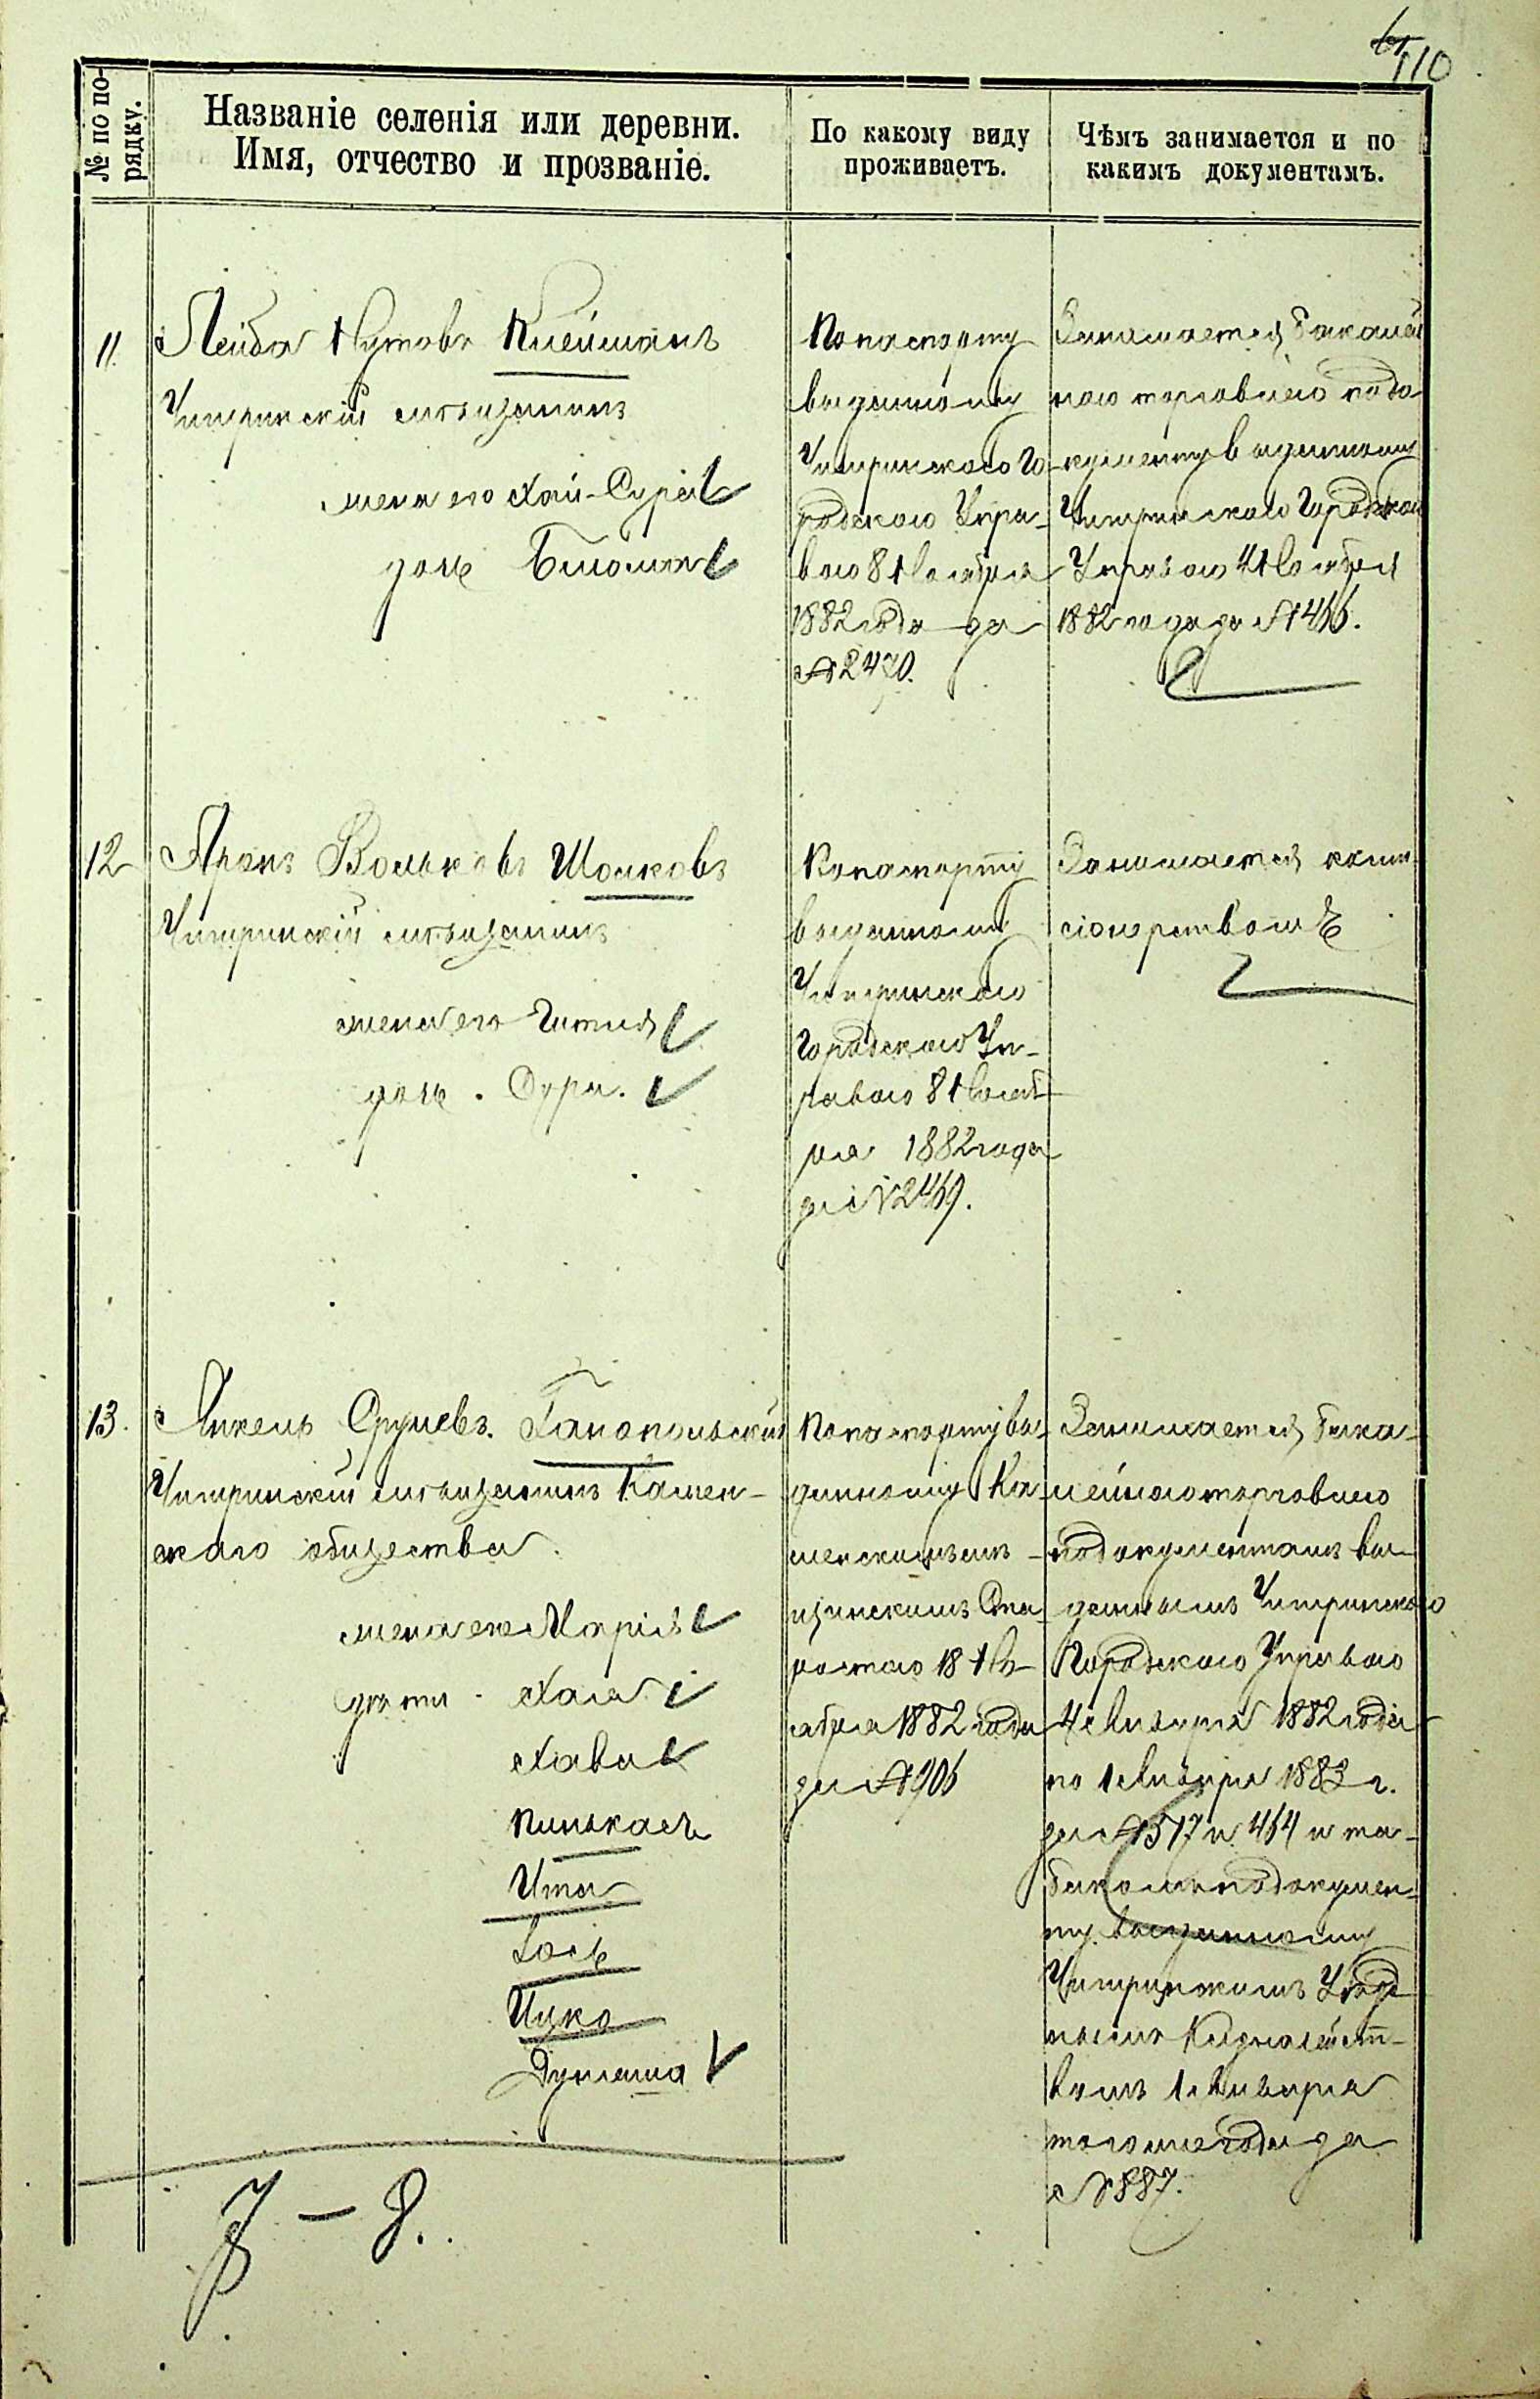 110
№ по по-
рядку.
Названіе селенія или деревни.
Имя, отчество и прозваніе.
По какому виду
проживаетъ.
Чѣмъ занимается и по
какимъ документамъ.
11.
Лейба Нутовъ Клейманъ
Чигиринскій мѣщанинъ
жена его Хай-Сура
дочь
По паспорту
выданному
Чигиринскою Го-
родскою Упра-
вою 8 Ноября
1882 года за
№ 2470.
Занимается бакалей
ною торговлею по до-
кументу выданному
Чигиринскою Городскою
Управою 4 Ноября
1882 года за № 466.
12
Аронъ Вольковъ Шолковъ
Чигиринскій мѣщанинъ
жена его Гитля
дочь. Сура.
По паспорту
выданному
Чигиринскою
Городскою Уп-
равою 8 Нояб
ря 1882 года
за № 2469.
Занимается комми
сіонерствомъ
13.
Янкель Срулевъ. Ганопольскій
Чигиринскій мѣщанинъ Камен-
скаго общества.
жена его Марія
дѣти - Хая
Хава
Пинькасъ
Ита
Іось
Ицко
По паспорту вы
данному Ка
менскимъ мѣ
щанскимъ Ста
ростою 18 Но
ября 1882 года
за № 906
Занимается бака-
лейною торговлею
по документамъ вы
даннымъ Чигиринскою
Городскою Управою
4 Января 1882 года
по 1 Января 1883 г.
за № 517 и 464 и та-
бакомъ по докумен-
ту выданному
Чигиринскимъ Уѣзд
нымъ Казначейст-
вомъ 1 Января
того же года за
№ 887.
7 - 8.